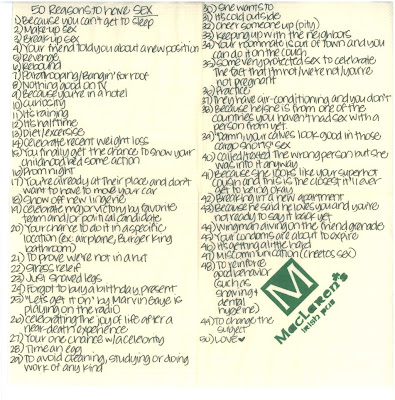 50 Reasons to have SEX
1) Because you can't get to sleep
2) Make-up sex
3) Break up sex
4) Your friend told you about a new position
5) Revenge
6) Rebound
7) Prohoping/Bangin' for roof
8) Nothing good on TV
9) Because you're in a hotel
10) curiosity
11) It's raining
12) It's halftime
13) Diet/exercise
14) Celebrate recent weight loss
15) You finally get the chance to show your
childhood bed some action
16) Prom night
17) You're already at their place and don't
want to have to move your car
18) Show off new lingerie
19) Celebrate major victory by favorite
team and/or political candidate
20) Your chance to do it in a specific
location (ex: airplane, Burger King
bathroom)
21) To prove we're not in a rut
22) Stress relief
23) Just shaved legs
24) Forgot to buy a birthday present
25) "Let's get it on" by Marvin Gaye is
playing on the radio
26) Celebrating the joy of life after a
near-death experience
27) Your one chance w/a celebrity
28) Time an egg
29) To avoid cleaning, studying or doing
work of any kind
30) She wants to
31) It's cold outside
32) Cheer someone up (pity)
33) Keeping up with the neighbors
34) Your roommate is out of town and you
can do it on the couch
35) Some very protected sex to celebrate
the fact that I'm not/we're not/you're
not pregnant
36) Practice
37) They have air-conditioning and you don't
38) Because he/she is from one of the
countries you haven't had sex with a
person from yet
39) "Damn, your calves look good in those
cargo shorts" sex
40) Called/texted the wrong person but she
was into it anyway
41) Because she looks like your super hot
cousin and this is the closest it'll ever
get to being okay
42) Breaking in a new apartment
43) Because he said he loves you and you're
not ready to say it back yet
44) Wingman diving on the friend grenade
45) Your condoms are about to expire
46) It's getting a little hard
47) Miscommunication (Cheetos sex)
48) To reinforce
good behavior
(such as
shaving &
dental
hygiene)
49) To change the
subject
50) LOVE ♥
M
MacLaren's
Irish Pub